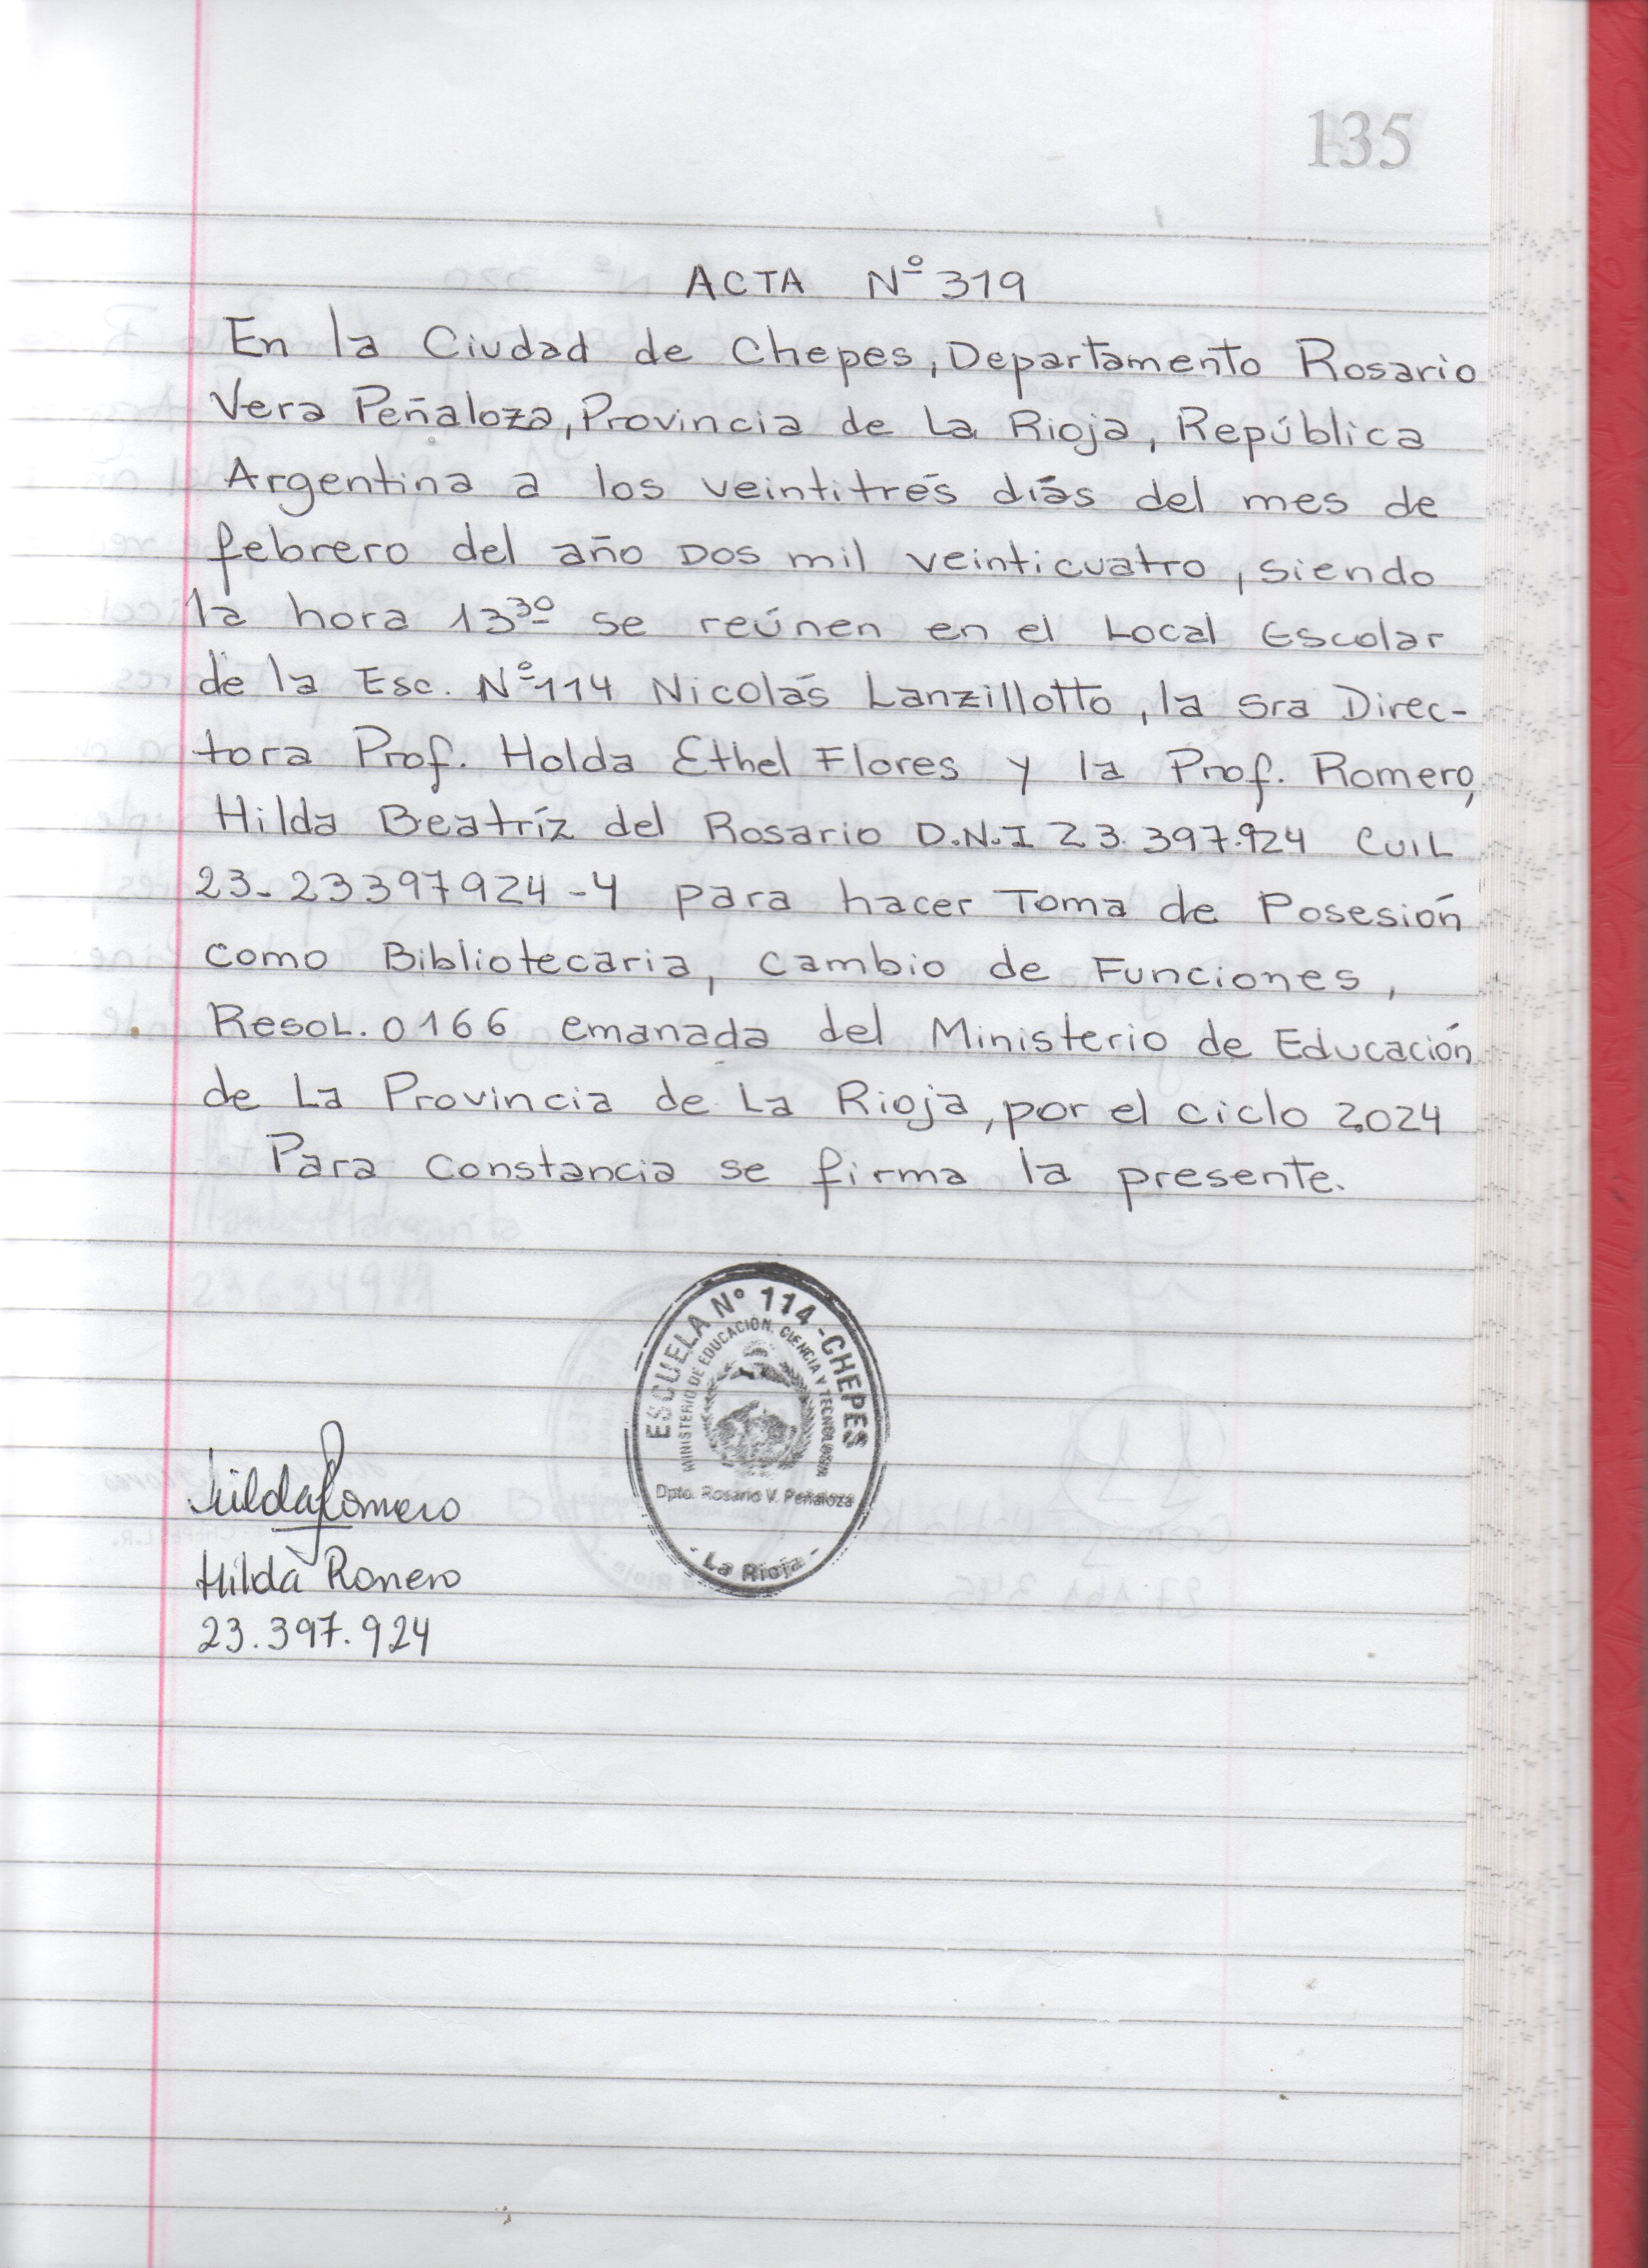 135
ACTA Nº 319
En la Ciudad de Chepes, Departamento Rosario
Vera Peñaloza, Provincia de La Rioja, República
Argentina a los veintitrés días del mes de
febrero del año Dos mil veinticuatro, siendo
la hora 13³⁰ se reúnen en el Local Escolar
de la Esc. Nº114 Nicolás Lanzillotto, la Sra Direc-
tora Prof. Holda Ethel Flores y la Prof. Romero,
Hilda Beatríz del Rosario D.N.I 23.397.924 CUIL
23-23397924-4 para hacer Toma de Posesión
como Bibliotecaria, cambio de Funciones,
Resol. 0166 emanada del Ministerio de Educación
de La Provincia de La Rioja, por el ciclo 2.024
Para Constancia se firma la presente.
ESCUELA Nº 114 - CHEPES
MINISTERIO DE EDUCACIÓN, CIENCIA Y TECNOLOGIA
Dpto. Rosario V. Peñaloza
- La Rioja -
Hilda Romero
Hilda Romero
23.397.924